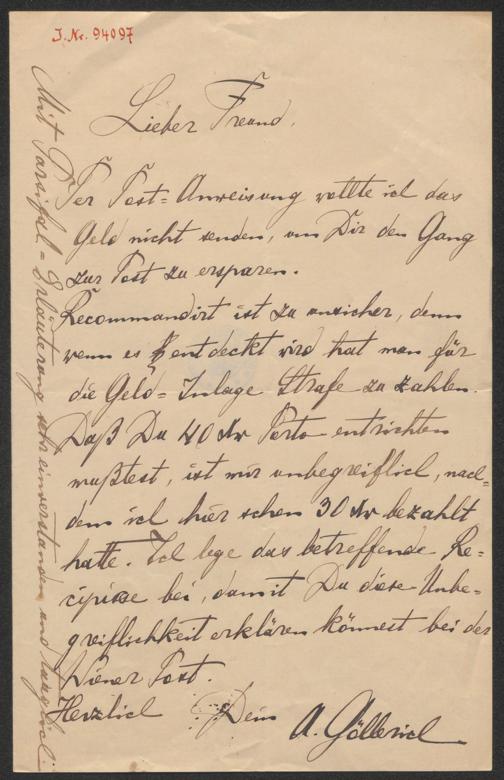 J. Nr. 94097
Lieber Freund.
Per Post=Anweisung wollte ich das
Geld nicht senden, um Dir den Gang
zur Post zu ersparen.
Recommandirt ist zu unsicher, denn
wenn es entdeckt wird hat man für
die Geld=Inlage Strafe zu zahlen.
Daß Du 40 Kr Porto entrichten
mußtest, ist mir unbegreiflich, nach=
dem ich hier schon 30 Kr bezahlt
hatte. Ich lege das betreffende Re=
cipisse bei, damit Du diese Unbe=
greiflichkeit erklären könnest bei der
Wiener Post.
Herzlich Dein A. Göllerich
Mit Parsifal=Erläuterung sehr einverstanden und